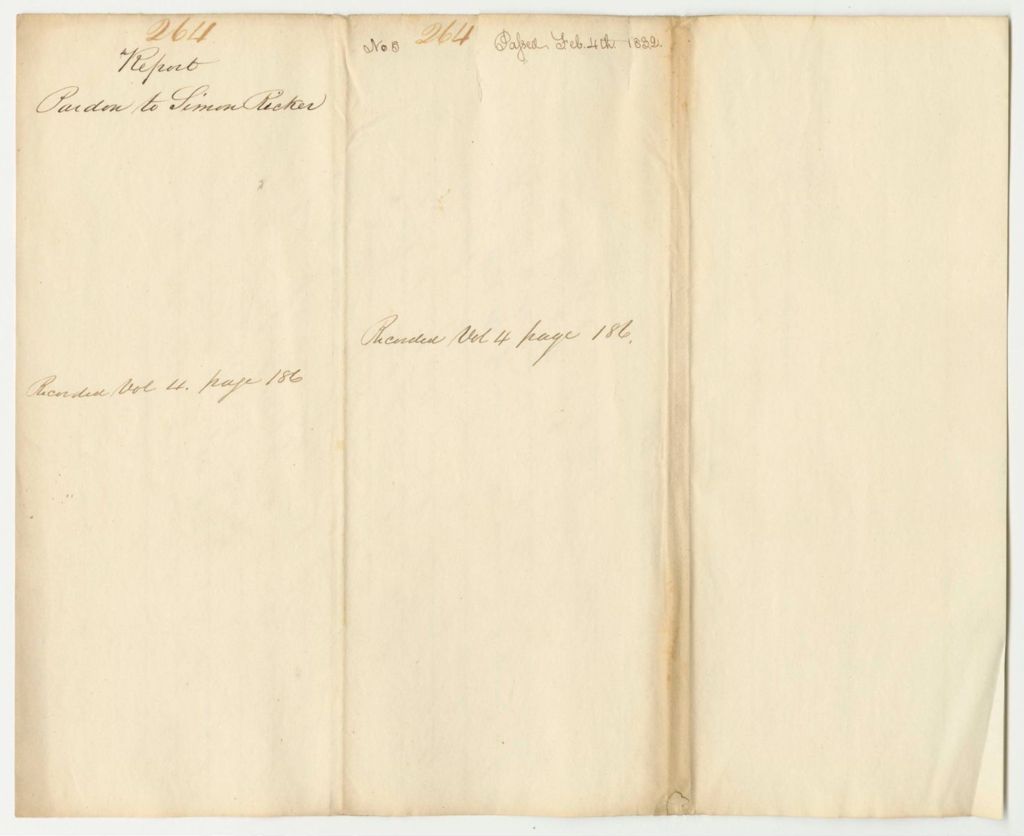 264
Report
Pardon to Simon Ricker
Recorded Vol 4. page 186
No 5 264 Passed, Feb. 4th 1832.
Recorded Vol 4 page 186.